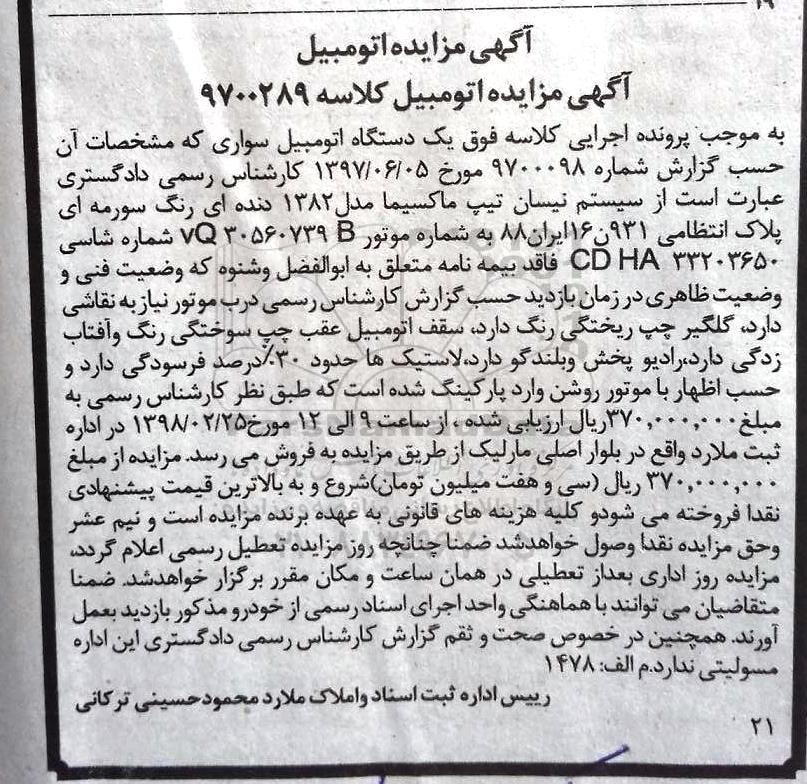 ۱۹
آگهی مزایده اتومبیل
آگهی مزایده اتومبیل کلاسه ۹۷۰۰۲۸۹
به موجب پرونده اجرایی کلاسه فوق یک دستگاه اتومبیل سواری که مشخصات آن
حسب گزارش شماره ۹۷۰۰۰۹۸ مورخ ۱۳۹۷/۰۶/۰۵ کارشناس رسمی دادگستری
عبارت است از سیستم نیسان تیپ ماکسیما مدل۱۳۸۲ دنده ای رنگ سورمه ای
پلاک انتظامی ۹۳۱ن۱۶ایران۸۸ به شماره موتور VQ ۳۰۵۶۰۷۳۹ B شماره شاسی
CD HA ۳۳۲۰۳۶۵۰ فاقد بیمه نامه متعلق به ابوالفضل وشنوه که وضعیت فنی و
وضعیت ظاهری در زمان بازدید حسب گزارش کارشناس رسمی درب موتور نیاز به نقاشی
دارد، گلگیر چپ ریختگی رنگ دارد، سقف اتومبیل عقب چپ سوختگی رنگ وآفتاب
زدگی دارد،رادیو پخش وبلندگو دارد،لاستیک ها حدود ۳۰٪درصد فرسودگی دارد و
حسب اظهار با موتور روشن وارد پارکینگ شده است که طبق نظر کارشناس رسمی به
مبلغ۳۷۰,۰۰۰,۰۰۰ریال ارزیابی شده ، از ساعت ۹ الی ۱۲ مورخ۱۳۹۸/۰۲/۲۵ در اداره
ثبت ملارد واقع در بلوار اصلی مارلیک از طریق مزایده به فروش می رسد. مزایده از مبلغ
۳۷۰,۰۰۰,۰۰۰ ریال (سی و هفت میلیون تومان)شروع و به بالاترین قیمت پیشنهادی
نقدا فروخته می شودو کلیه هزینه های قانونی به عهده برنده مزایده است و نیم عشر
وحق مزایده نقدا وصول خواهدشد ضمنا چنانچه روز مزایده تعطیل رسمی اعلام گردد،
مزایده روز اداری بعداز تعطیلی در همان ساعت و مکان مقرر برگزار خواهدشد. ضمنا
متقاضیان می توانند با هماهنگی واحد اجرای اسناد رسمی از خودرو مذکور بازدید بعمل
آورند. همچنین در خصوص صحت و ثقم گزارش کارشناس رسمی دادگستری این اداره
مسولیتی ندارد.م الف: ۱۴۷۸
رییس اداره ثبت اسناد واملاک ملارد محمودحسینی ترکانی
۲۱